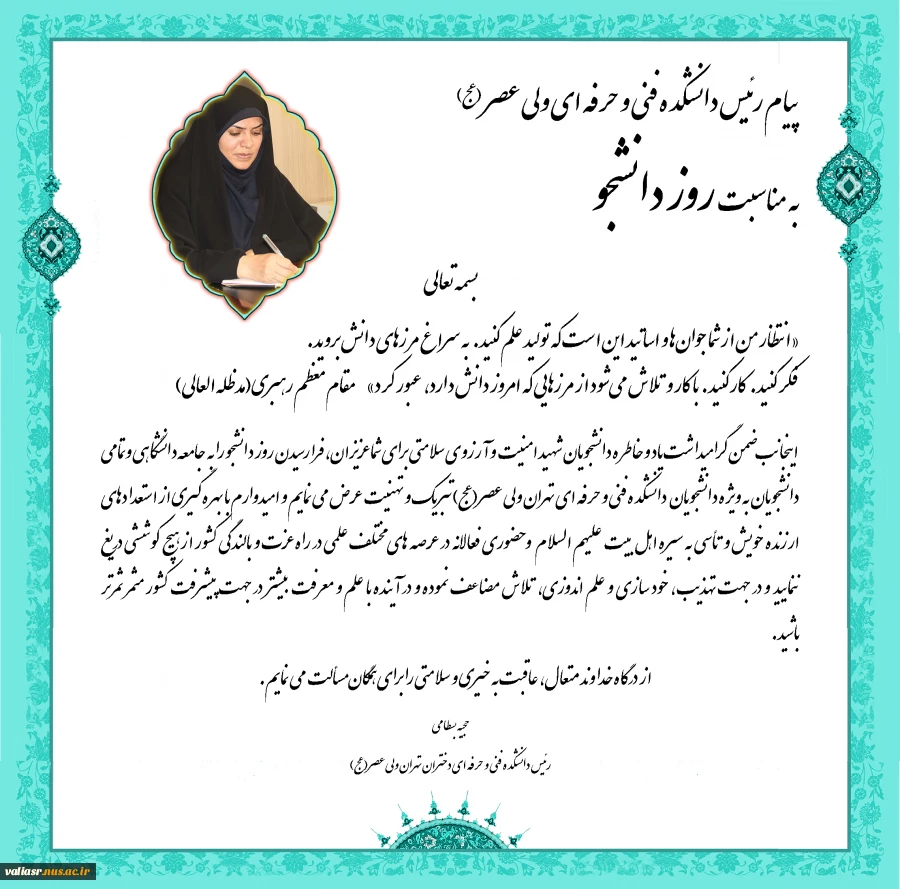 پیام رئیس دانشکده فنی و حرفه ای ولی عصر (عج)
به مناسبت روز دانشجو
بسمه تعالی
«انتظار من از شما جوان ها و اساتید این است که تولید علم کنید. به سراغ مرزهای دانش بروید.
فکر کنید. کار کنید. با کار و تلاش می شود از مرزهایی که امروز دانش دارد، عبور کرد» مقام معظم رهبری(مدظله العالی)
اینجانب ضمن گرامیداشت یاد و خاطره دانشجویان شهید امنیت و آرزوی سلامتی برای شما عزیزان، فرا رسیدن روز دانشجو را به جامعه دانشگاهی و تمامی
دانشجویان به ویژه دانشجویان دانشکده فنی و حرفه ای تهران ولی عصر(عج) تبریک و تهنیت عرض می نمایم و امیدوارم با بهره گیری از استعدادهای
ارزنده خویش و تأسی به سیره اهل بیت علیهم السلام وحضوری فعالانه در عرصه های مختلف علمی در راه عزت و بالندگی کشور از هیچ کوششی دریغ
ننمایید و در جهت تهذیب، خودسازی و علم اندوزی، تلاش مضاعف نموده و در آینده با علم و معرفت بیشتر در جهت پیشرفت کشور مثمر ثمرتر
باشید.
از درگاه خداوند متعال، عاقبت به خیری و سلامتی را برای همگان مسألت می نمایم.
بسطامی
رئیس دانشکده فنی و حرفه ای دختران تهران ولی عصر(عج)
valiasr.nus.ac.ir